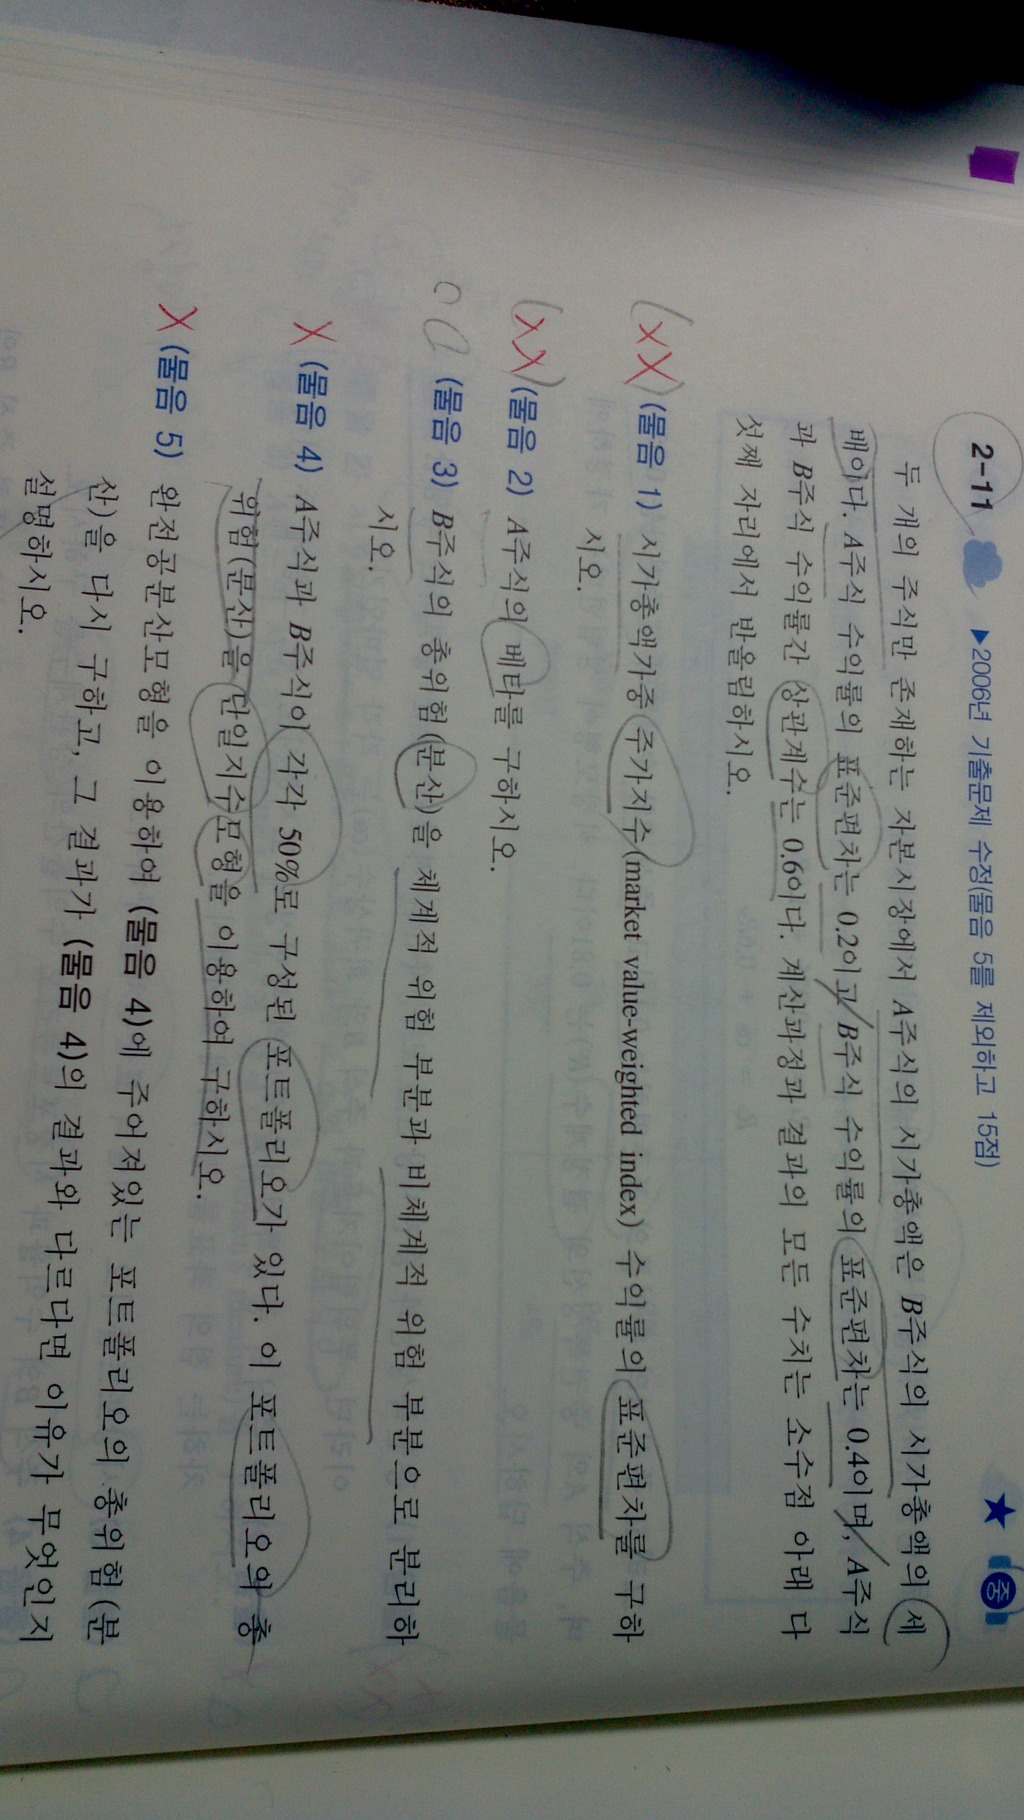 2-11 ▶2006년 기출문제 수정(물음 5를 제외하고 15점) ★ 중
두 개의 주식만 존재하는 자본시장에서 A주식의 시가총액은 B주식의 시가총액의 세
배이다. A주식 수익률의 표준편차는 0.2이고 B주식 수익률의 표준편차는 0.4이며, A주식
과 B주식 수익률간 상관계수는 0.6이다. 계산과정과 결과의 모든 수치는 소수점 아래 다
섯째 자리에서 반올림하시오.
(XX) (물음 1) 시가총액가중 주가지수(market value-weighted index) 수익률의 표준편차를 구하
시오.
(XX) (물음 2) A주식의 베타를 구하시오.
(물음 3) B주식의 총위험(분산)을 체계적 위험 부분과 비체계적 위험 부분으로 분리하
시오.
X (물음 4) A주식과 B주식이 각각 50%로 구성된 포트폴리오가 있다. 이 포트폴리오의 총
위험(분산)을 단일지수모형을 이용하여 구하시오.
X (물음 5) 완전공분산모형을 이용하여 (물음 4)에 주어져있는 포트폴리오의 총위험(분
산)을 다시 구하고, 그 결과가 (물음 4)의 결과와 다르다면 이유가 무엇인지
설명하시오.